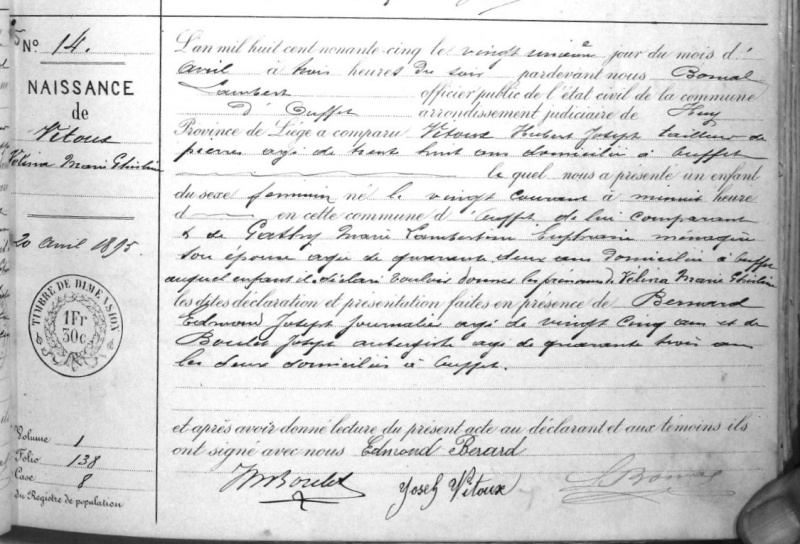 No 14.
NAISSANCE
de
Vitoux
Vélina Marie Ghislin
20 avril 1895.
TIMBRE DE DIMENSION
1Fr
30c
Volume 1
Folio 138
Case 8
du Registre de population
L'an mil huit cent nonante-cinq le vingt unième jour du mois d'
avril à trois heures du soir pardevant nous Bonal
Lambert officier public de l'état civil de la commune
d'Ouffet arrondissement judiciaire de Huy
Province de Liège a comparu Vitoux Hubert Joseph tailleur de
pierres agé de trent huit ans domicilié à Ouffet
le quel nous a présenté un enfant
du sexe féminin né le vingt courant à minuit heure
d en cette commune d'Ouffet de lui comparant
& de Gathy Marie Lambertine ménagère
son épouse agée de quarante deux ans domicilié à Ouffet
auquel enfant il déclaré vouloir donner les prénoms de Vélina Marie Ghislin
les dites déclaration et présentation faites en présence de Bernard
Edmond Joseph journalier agé de vingt cinq ans et de
Boulet Joseph agé de quarante trois ans
les deux domiciliés à Ouffet.
et après avoir donné lecture du présent acte au déclarant et aux témoins ils
ont signé avec nous Edmond Berard
Boulet Joseh Vitoux L Bonal